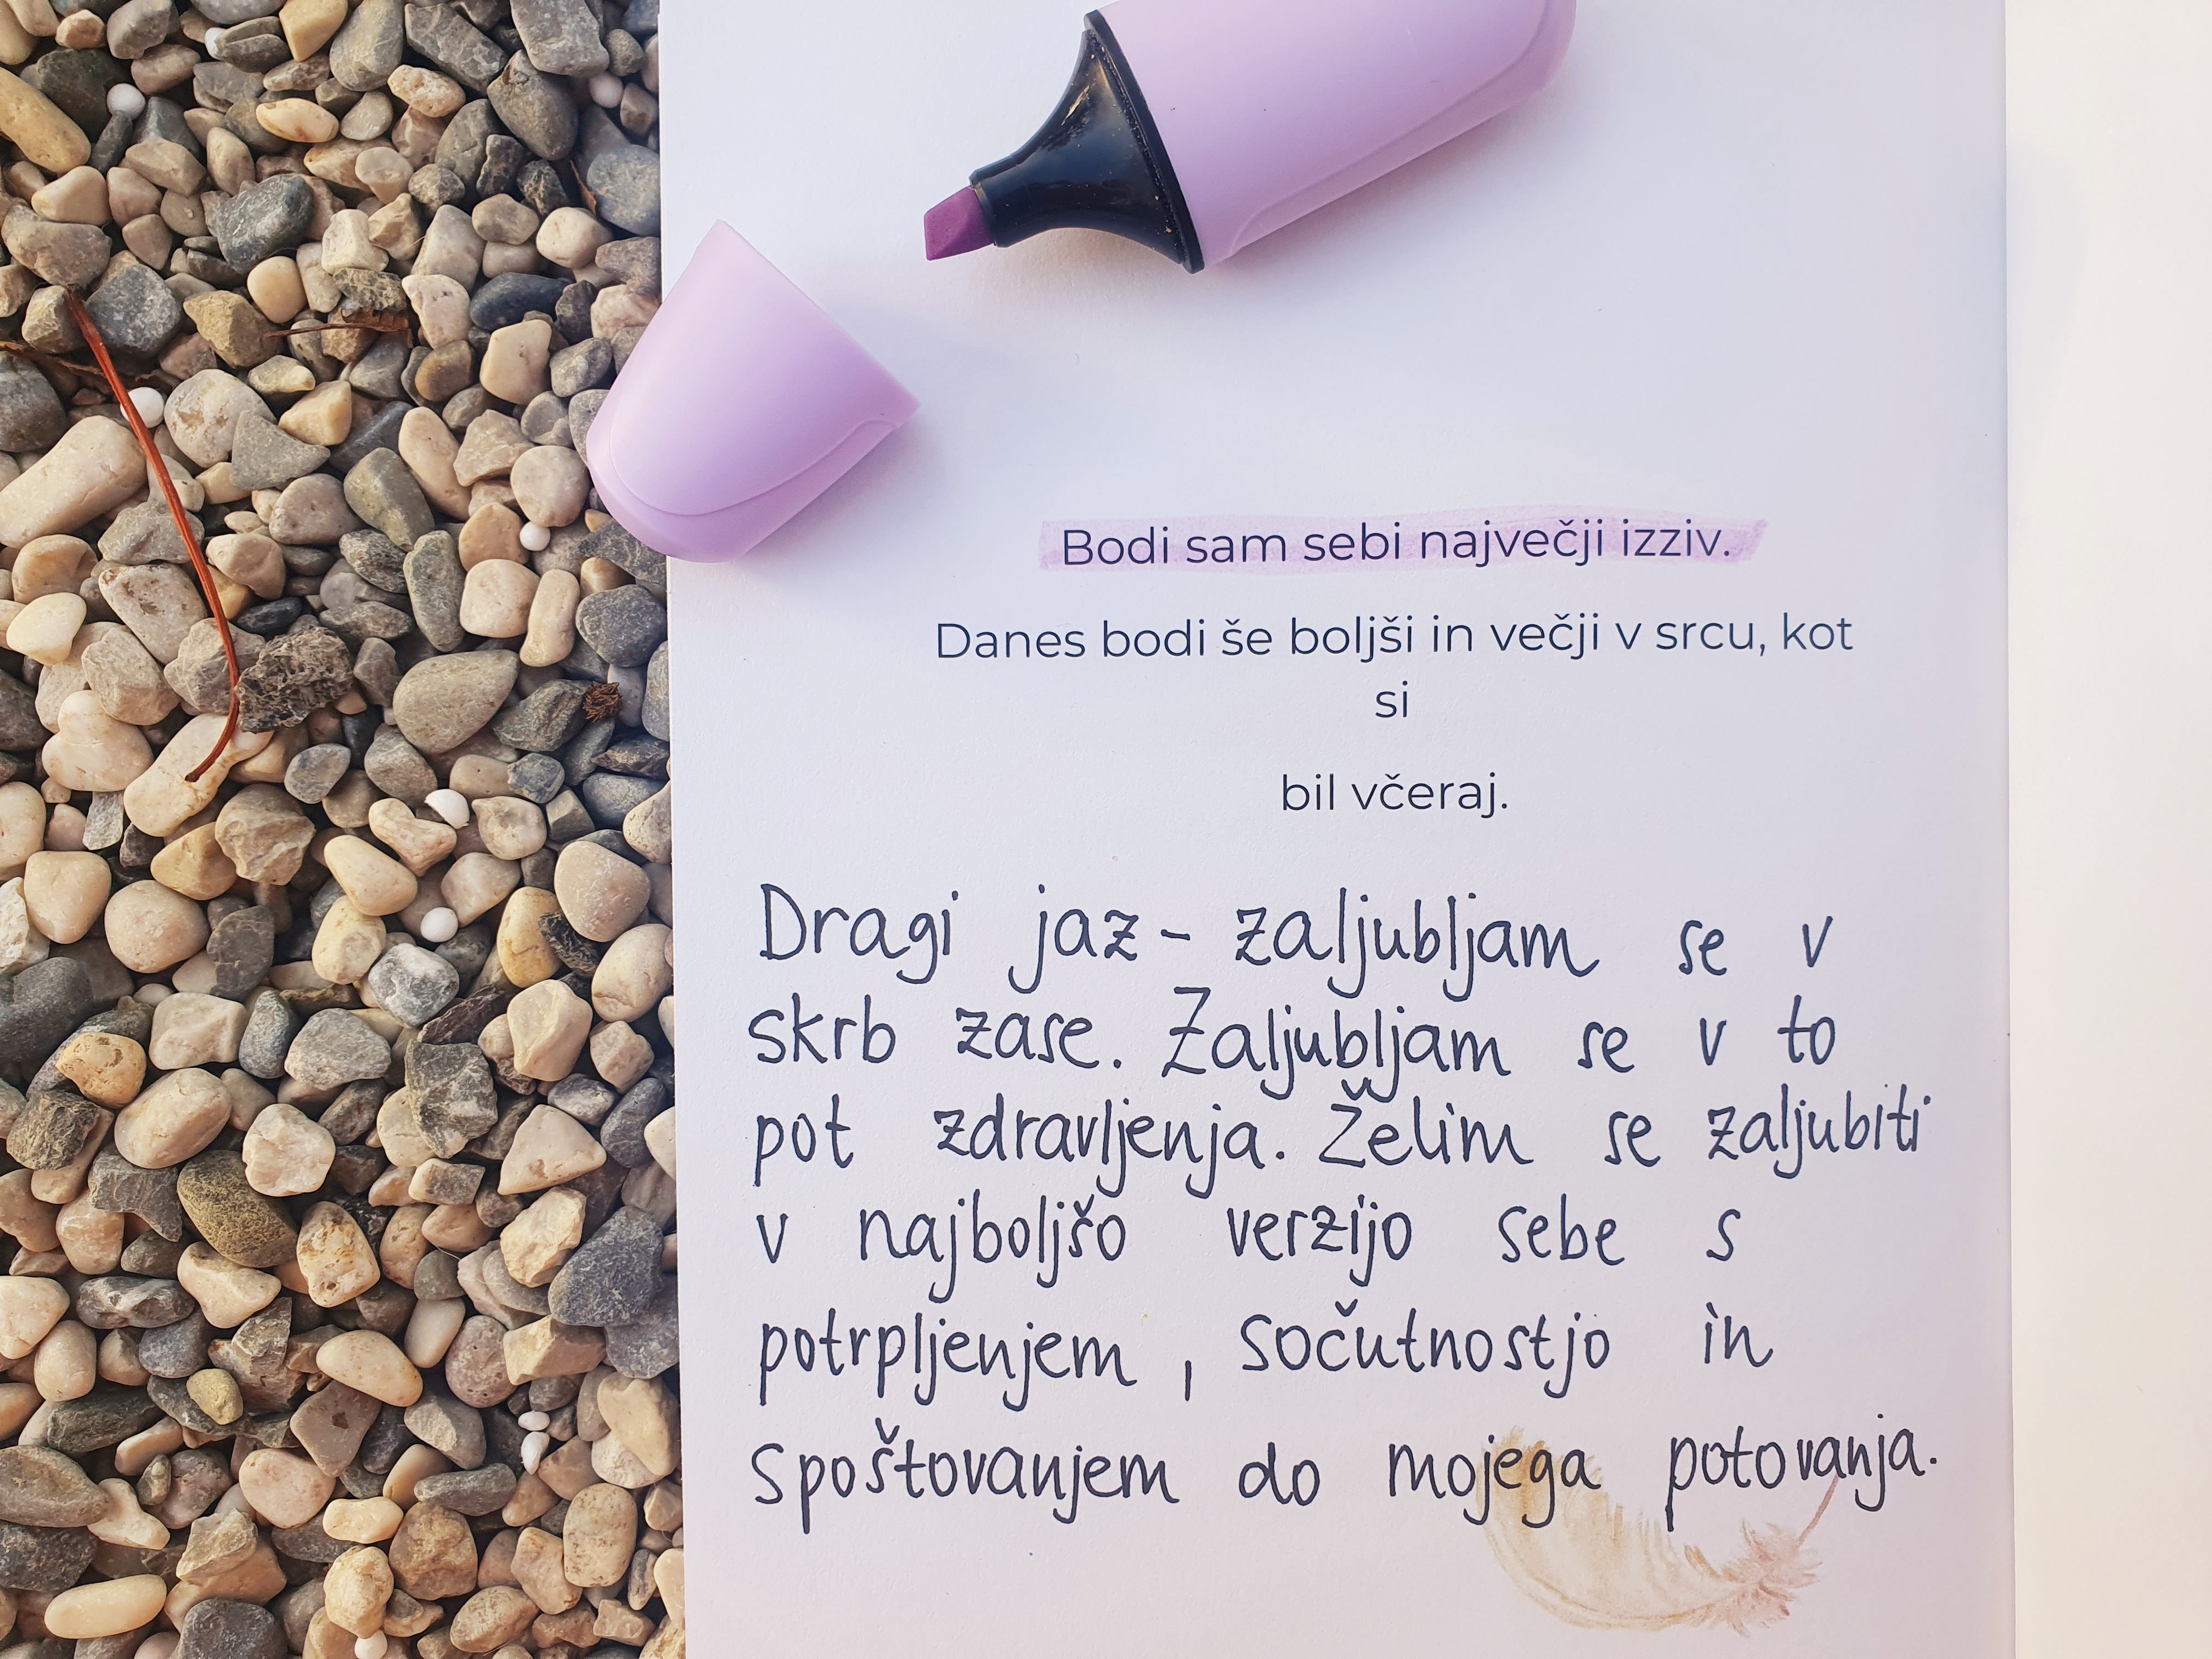 Bodi sam sebi največji izziv.
Danes bodi še boljši in večji v srcu, kot
si
bil včeraj.
Dragi jaz - zaljubljam se v
skrb zase. Zaljubljam se v to
pot zdravljenja. Želim se zaljubiti
v najboljšo verzijo sebe s
potrpljenjem, sočutnostjo in
spoštovanjem do mojega potovanja.